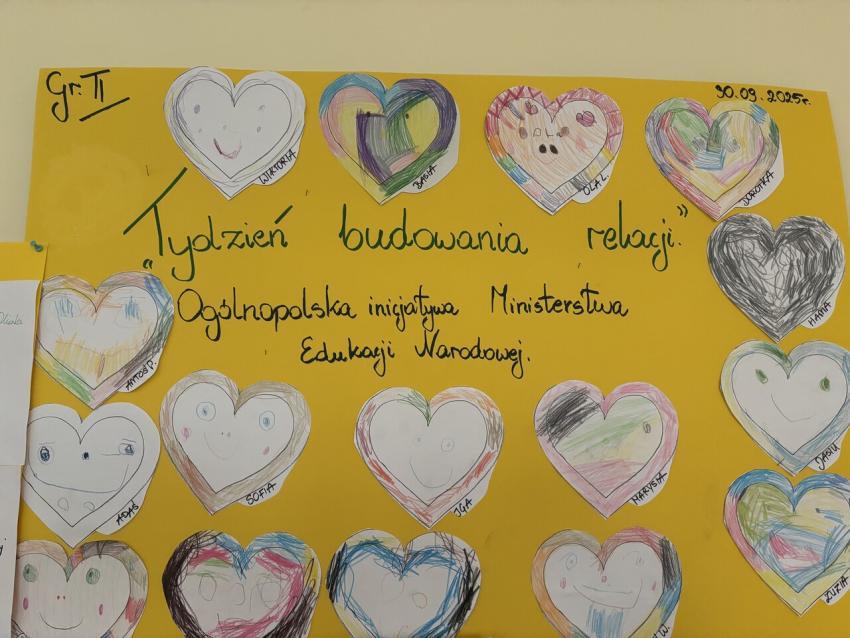 Gr. II
30.09.2025r.
WIKTORIA
BASIA
OLA Ł.
DOROTKA
„Tydzień budowania relacji."
HANIA
Ogólnopolska inicjatywa Ministerstwa
Edukacji Narodowej.
ANTOŚ P.
JASIU
ADAŚ
SOFIA
IGA
MARYSIA
ZUZIA
W.